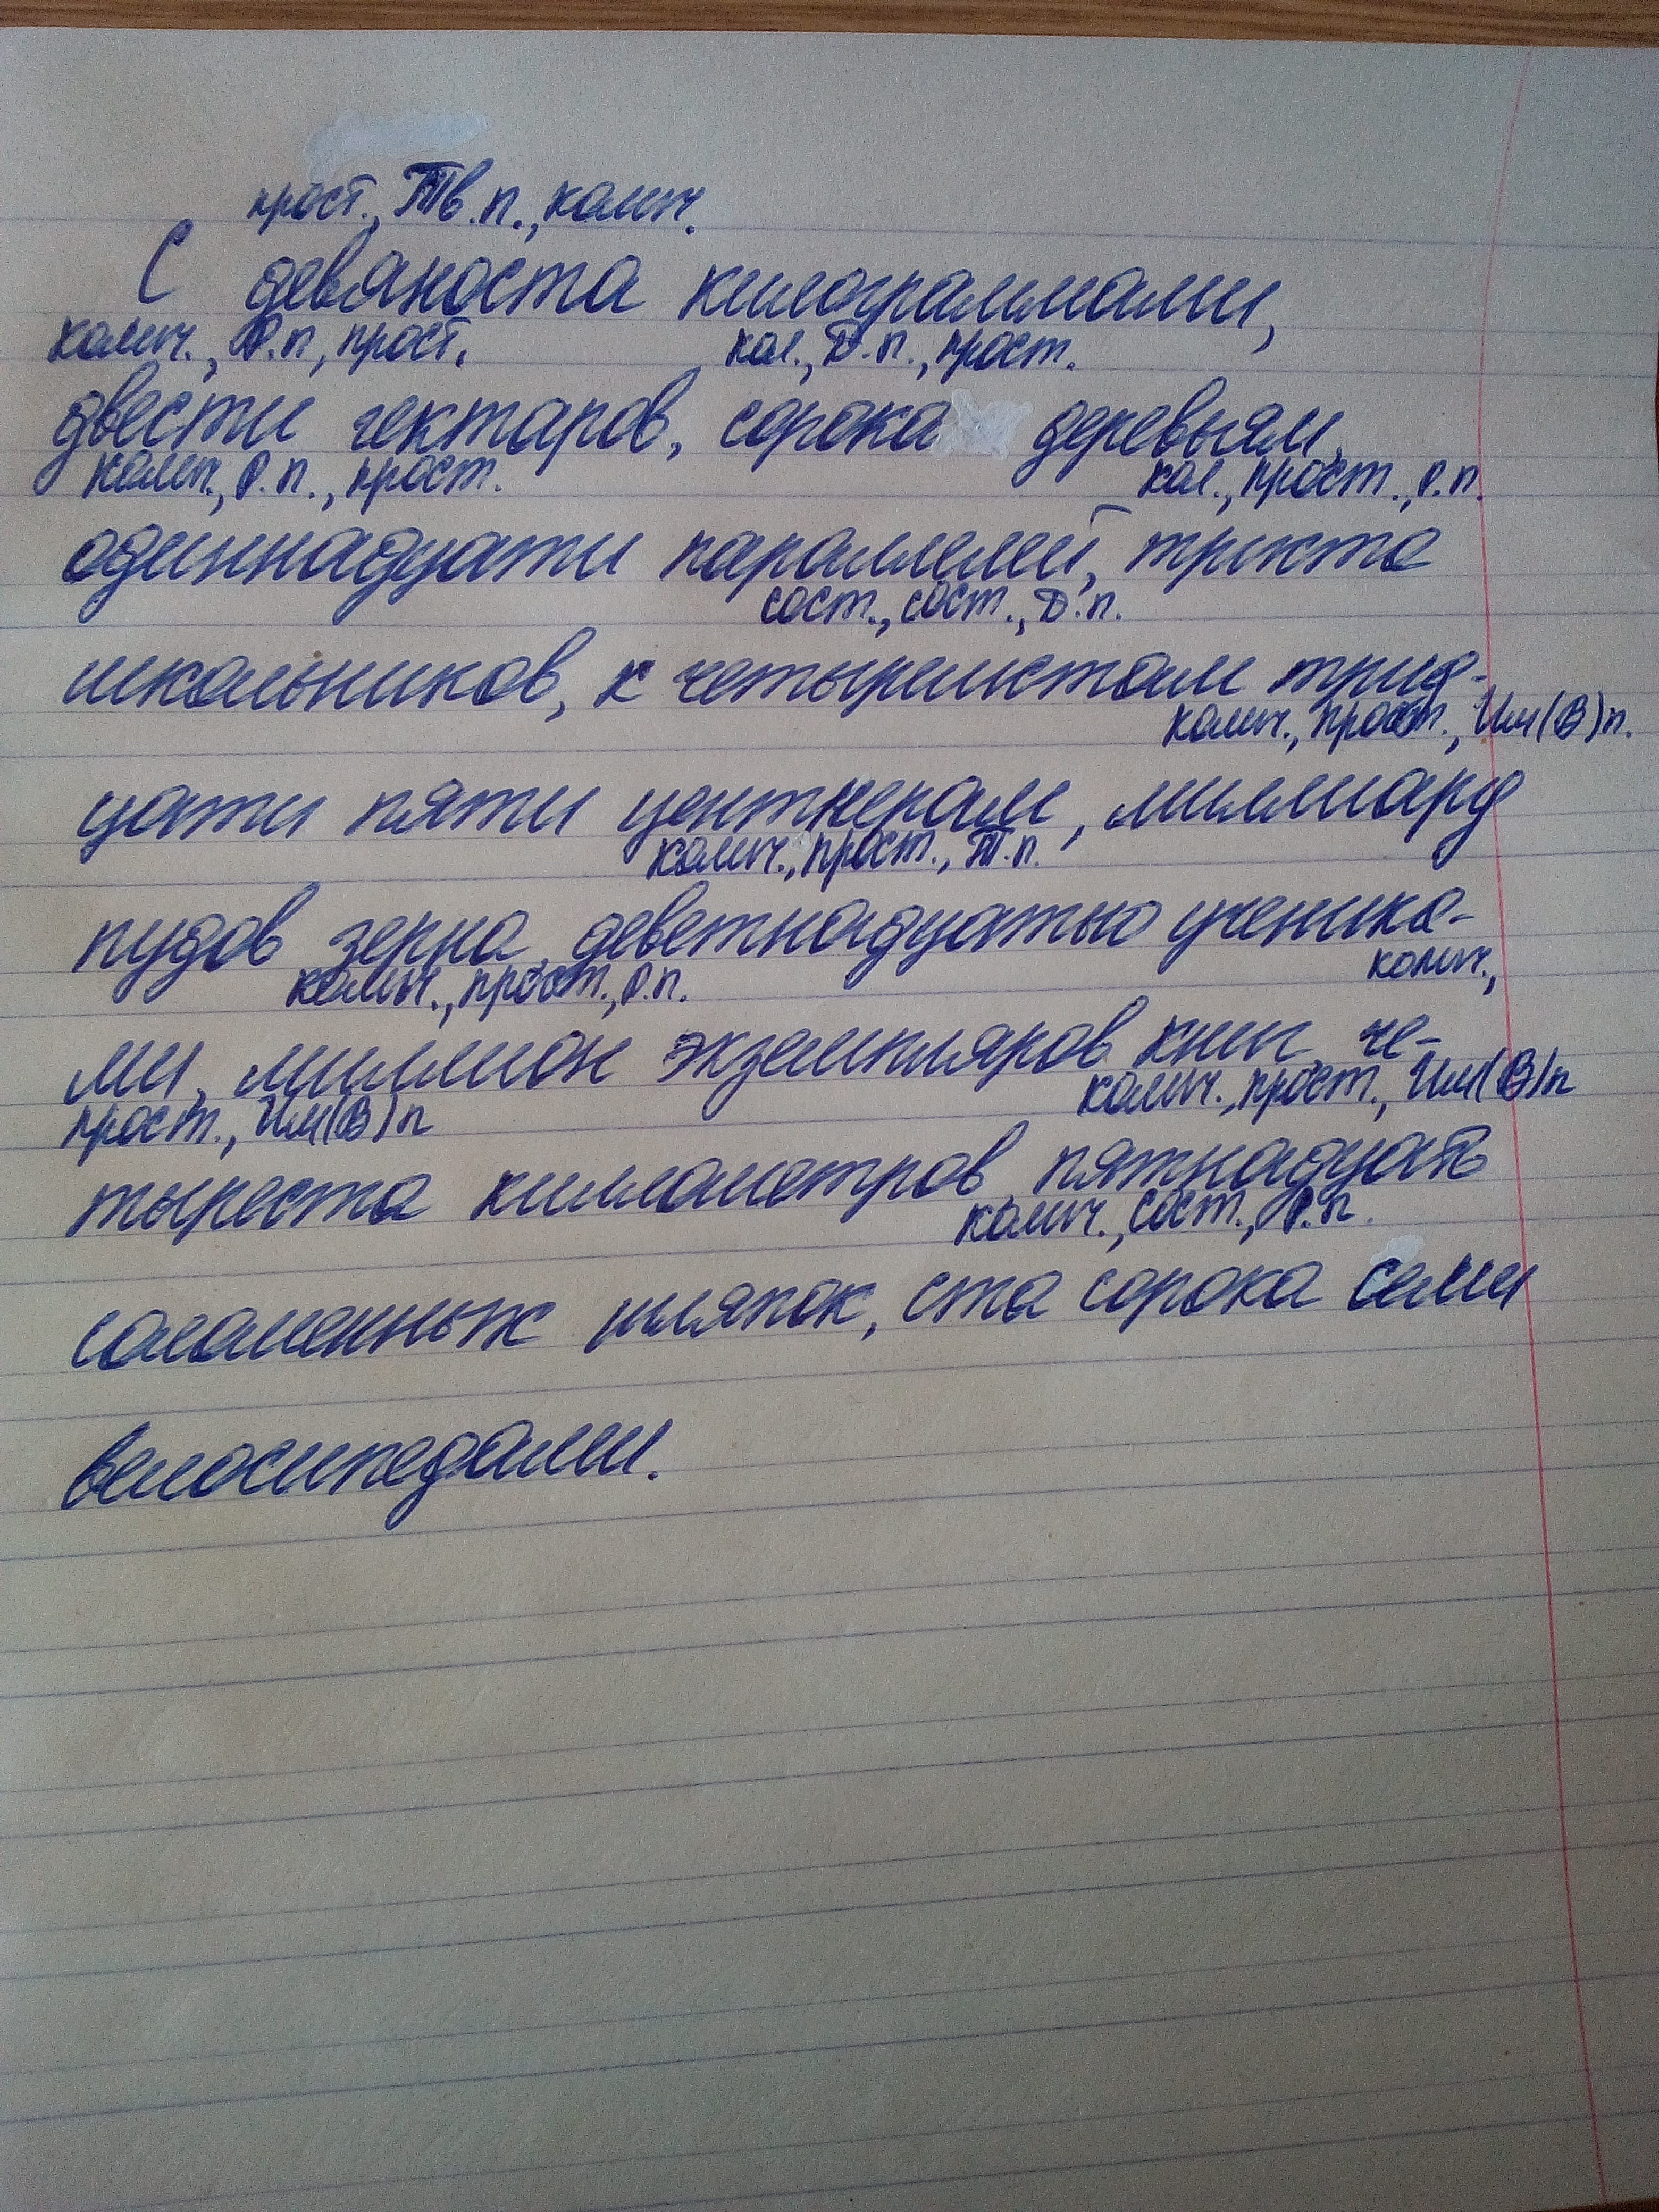 прост., Тв.п., колич.
С девяноста килограммами,
колич., Р.п, прост. кол., Д.п., прост.
двести гектаров, сорока деревьям,
колич., Р.п., прост. кол., прост., Р.п.
одиннадцати параллелей, триста
сост., сост., Д.п.
школьников, к четырёмстам трид-
колич., прост., Им(В)п.
цати пяти центнерам, миллиард
колич., прост., Т.п.
пудов зерна, деветнадцатью ученика-
колич., прост., Р.п. колич.,
ми, миллион экземпляров книг, че-
прост., Им(В)п колич., прост., Им(В)п
тыреста километров, пятнадцать
колич., сост., Р.п.
соломенных шляпок, ста сорока семи
велосипедами.